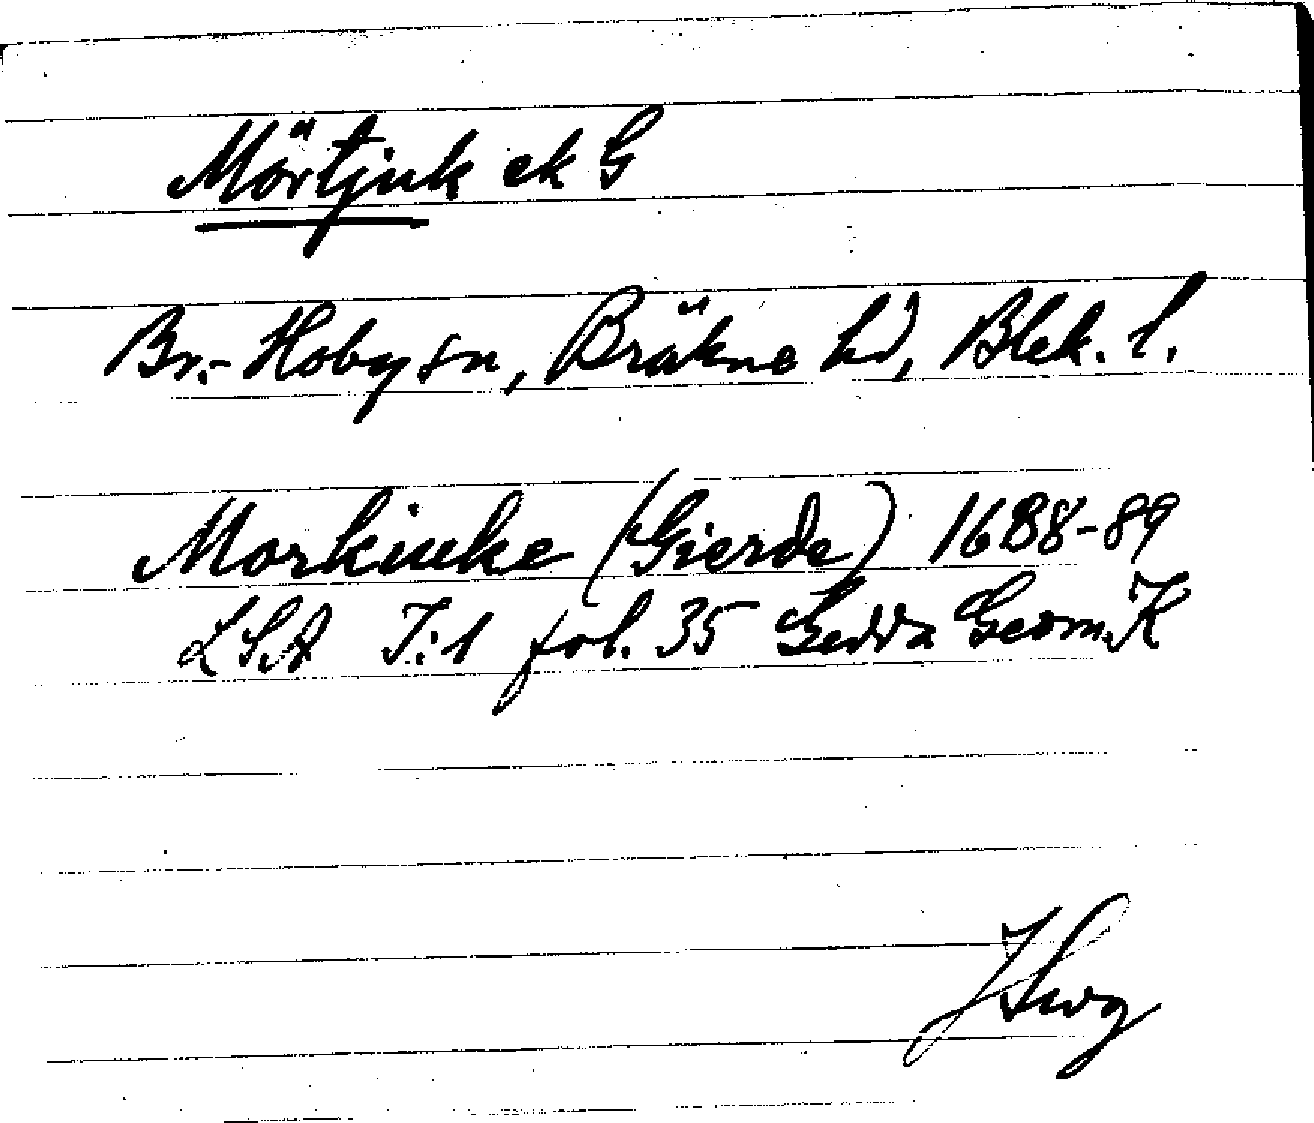 Mörtjuk ek G
Br.-Hoby sn, Bräkne hd, Blek. l.
Morkiuke (Gierde) 1688-89
LSA I:1 fol. 35 Gedda Geom. K